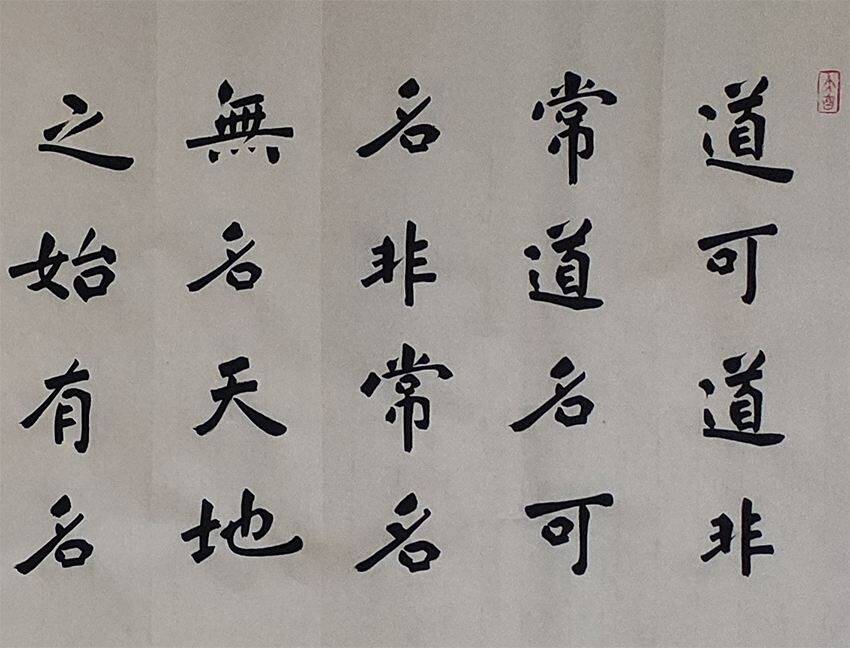 道可道非
常道名可
名非常名
無名天地
之始有名